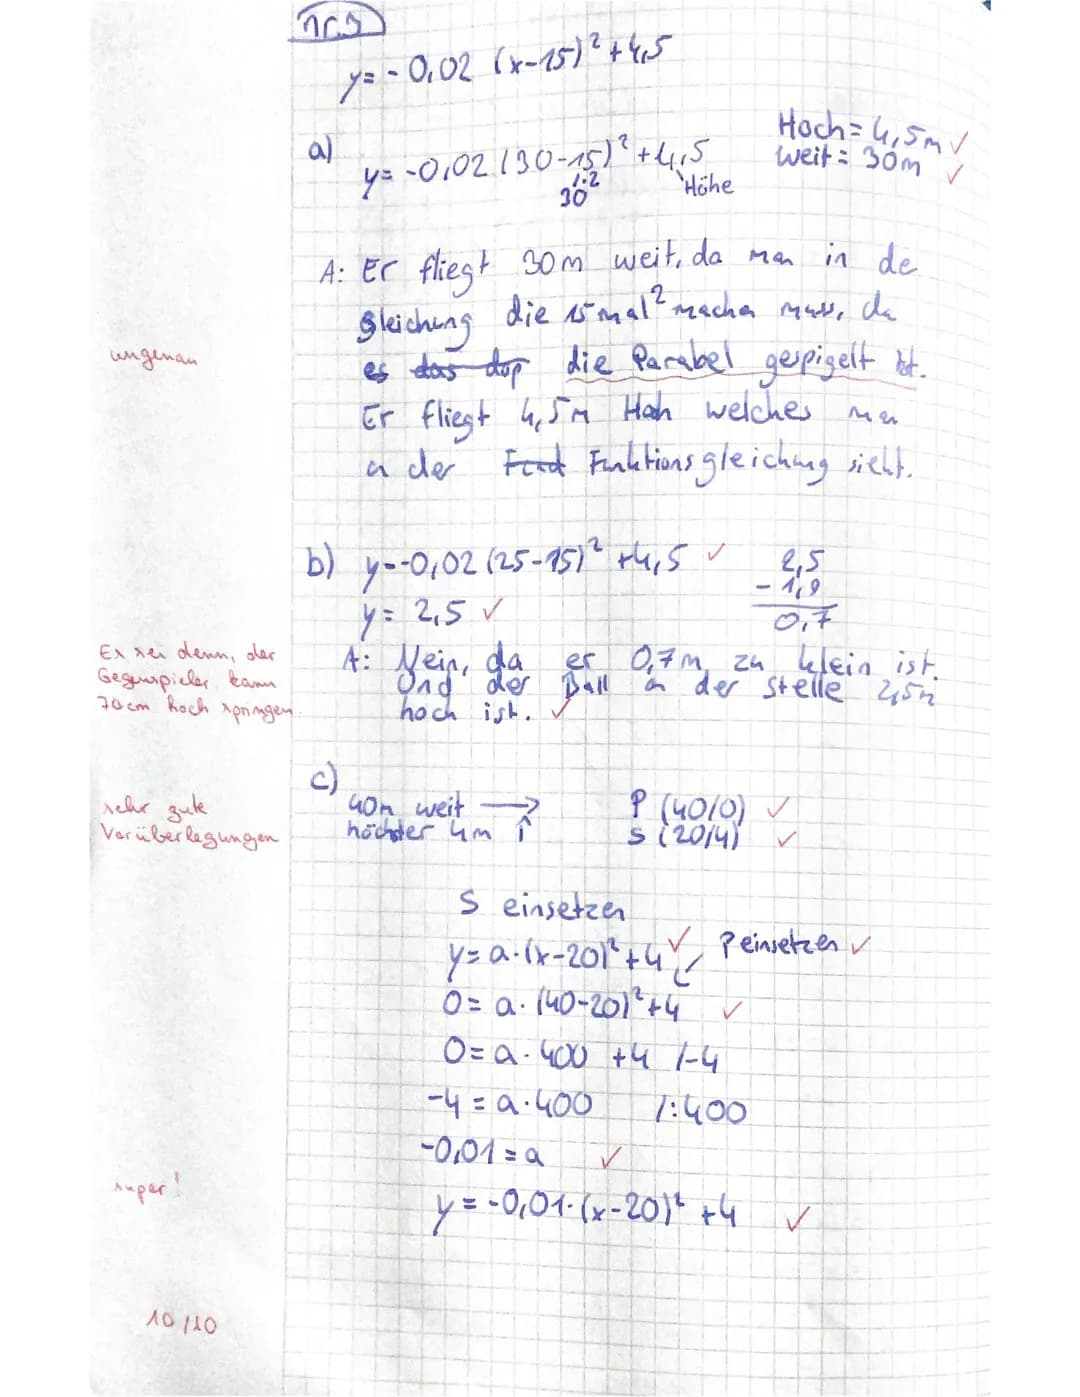 nr.5
y= -0,02 (x-15)² +4,5
a)
y= -0,02 (30-15)² +4,5
/·2
30
Höhe
Hoch= 4,5m ✓
Weit= 30m ✓
A: Er fliegt 30m weit, da man in de
gleichung die 15 mal² machen muss, da
ungenau
es das dop die Parabel gespigelt ist.
Er fliegt 4,5m Hoh welches man
an der Funktionsgleichung sieht.
b) y=-0,02 (25-15)² +4,5 ✓
y= 2,5 ✓
2,5
- 1,8
0,7
Es sei denn, der
Gegenspieler kann
70cm hoch springen
A: Nein, da er 0,7m zu klein ist.
Und der Ball an der stelle 2,5m
hoch ist. ✓
c)
40m weit →
höchster 4m ↑
P (40/0) ✓
S (20/4) ✓
sehr gute
Vorüberlegungen
S einsetzen
y= a·(x-20)² +4 ✓ P einsetzen ✓
0= a· (40-20)² +4 ✓
0= a· 400 +4 /-4
-4 = a·400 /:400
-0,01 = a ✓
super!
y = -0,01·(x-20)² +4 ✓
10/10